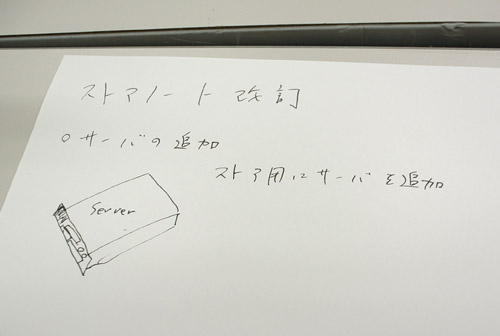 ストアノート 改訂
○ サーバの追加
ストア用にサーバを追加
Server